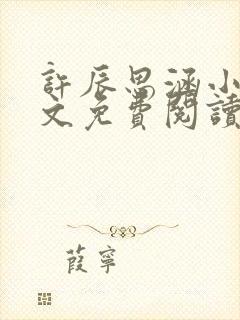 許辰思涵小
文免費閱讀
葭寧